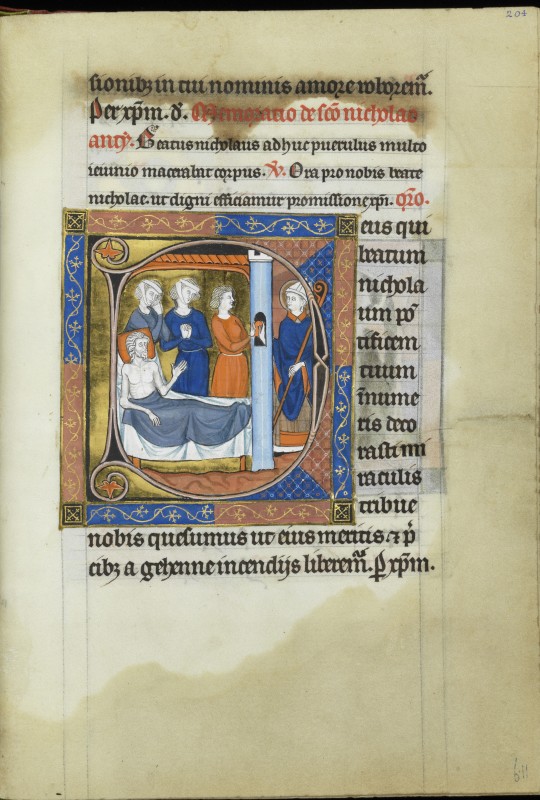 204
sionibz in tui nominis amore roborem̃.
Per xp̃m. d̃. Memoratio de sc̃o nicholao
antỹ. Beatus nicholaus adhuc puerulus multo
ieiunio macerabat corpus. ℣. Ora pro nobis beate
nicholae. ut digni efficiamur promissione xp̃i. or̃o.
eus qui
beatum
nichola
um põ
tificem
tuum
ĩnume
ris deco
rasti mi
raculis
tribue
nobis quesumus ut eius meritis ⁊ p̃
cibz a gehenne incendijs liberem̃. P̲ xp̃m.